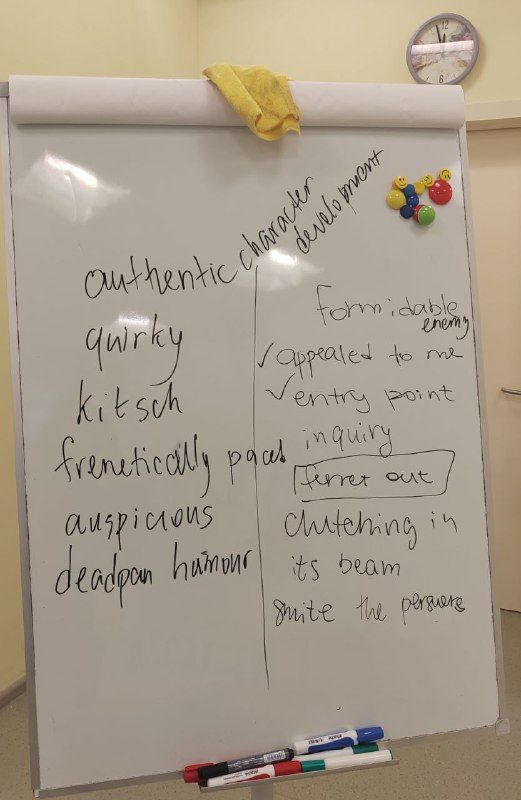 authentic character
development
quirky
kitsch
frenetically paced
auspicious
deadpan humour
formidable
enemy
✓ appealed to me
✓ entry point
inquiry
ferret out
clutching in
its beam
smite the